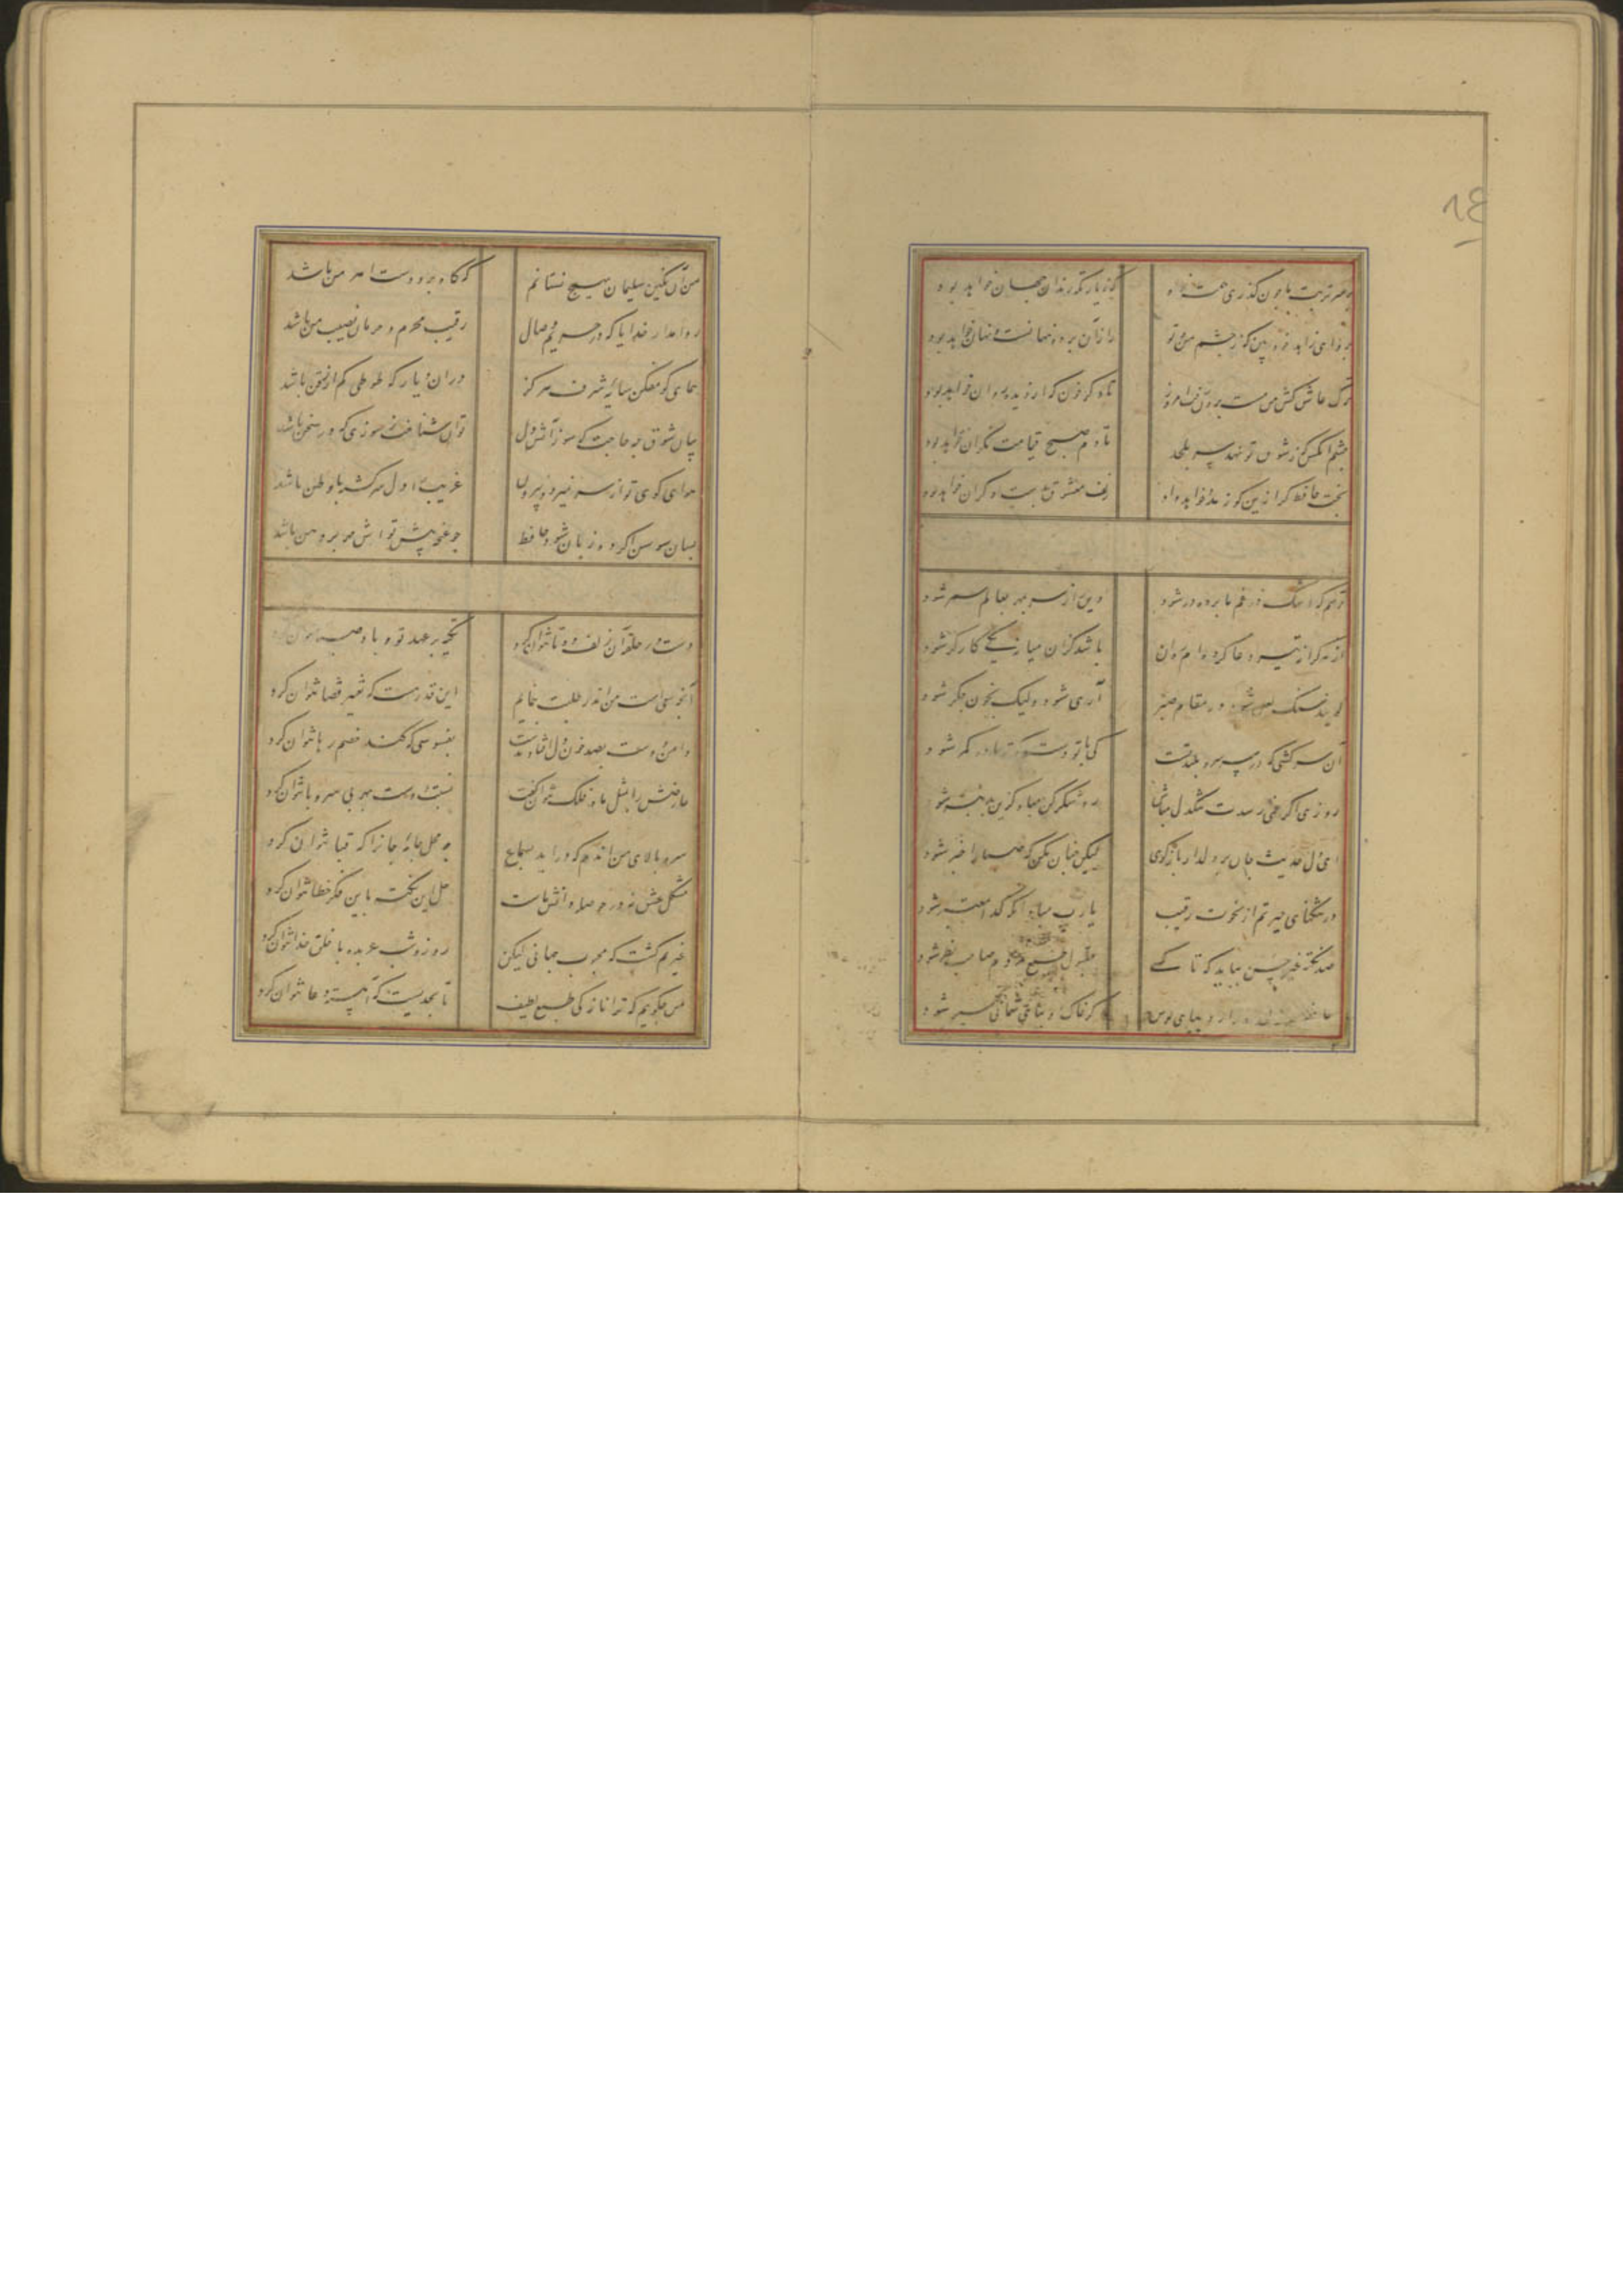 ٨٤
بر سر تربت ما چون گذری همت خواه
که زیارتگه رندان جهان خواهد بود
برو ای زاهد خودبین که ز چشم من و تو
راز آن پرده نهانست و نهان خواهد بود
ترک عاشق کش من مست برون رفت امروز
تا دگر خون که از دیده روان خواهد بود
چشم آنکس که ز شوق تو نهد سر بلحد
تا دم صبح قیامت نگران خواهد بود
بخت حافظ گر ازین گونه مدد خواهد داد
زلف معشوق بدست دگران خواهد بود
ترسم که اشک در غم ما پرده در شود
وین راز سر بمهر بعالم سمر شود
از هر کرانه تیر دعا کرده ام روان
باشد کزان میانه یکی کارگر شود
گویند سنگ لعل شود در مقام صبر
آری شود ولیک بخون جگر شود
آن سرکشی که در سر سرو بلند تست
کی با تو دست کوته ما در کمر شود
روزی اگر غمی رسدت تنگدل مباش
رو شکر کن مباد که از بد بتر شود
ای دل حدیث ما بر دلدار بازگوی
لیکن چنان مکن که صبا را خبر شود
در تنگنای حیرتم از نخوت رقیب
یا رب مباد آنکه گدا معتبر شود
صد نکته غیر حسن بباید که تا کسے
مقبول طبع مردم صاحب نظر شود
حافظ سر از لحد بدر آرد بپای بوس
گر خاک او بپای شما پی سپر شود
من آن نگین سلیمان بهیچ نستانم
که گاه گاه برو دست اهرمن باشد
روا مدار خدایا که در حریم وصال
رقیب محرم و حرمان نصیب من باشد
همای گو مفکن سایه شرف هرگز
در آن دیار که طوطی کم از زغن باشد
بیان شوق چه حاجت که سوز آتش دل
توان شناخت ز سوزی که در سخن باشد
هوای کوی تو از سر نمیرود بیرون
غریب را دل سرگشته با وطن باشد
بسان سوسن اگر ده زبان شود حافظ
چو غنچه پیش تواش مهر بر دهن باشد
دست در حلقه آن زلف دوتا نتوان کرد
تکیه بر عهد تو و باد صبا نتوان کرد
آنچه سعی است من اندر طلبت بنمایم
این قدر هست که تغییر قضا نتوان کرد
دامن دوست بصد خون دل افتاد بدست
بفسوسی که کند خصم رها نتوان کرد
عارضش را بمثل ماه فلک نتوان گفت
نسبت دوست بهر بی سر و پا نتوان کرد
سرو بالای من آندم که درآید بسماع
چه محل جامه جان را که قبا نتوان کرد
مشکل عشق نه در حوصله دانش ماست
حل این نکته باین فکر خطا نتوان کرد
غیرتم کشت که محبوب جهانی لیکن
روز و شب عربده با خلق خدا نتوان کرد
من چگویم که ترا نازکی طبع لطیف
تا بحدیست که آهسته دعا نتوان کرد